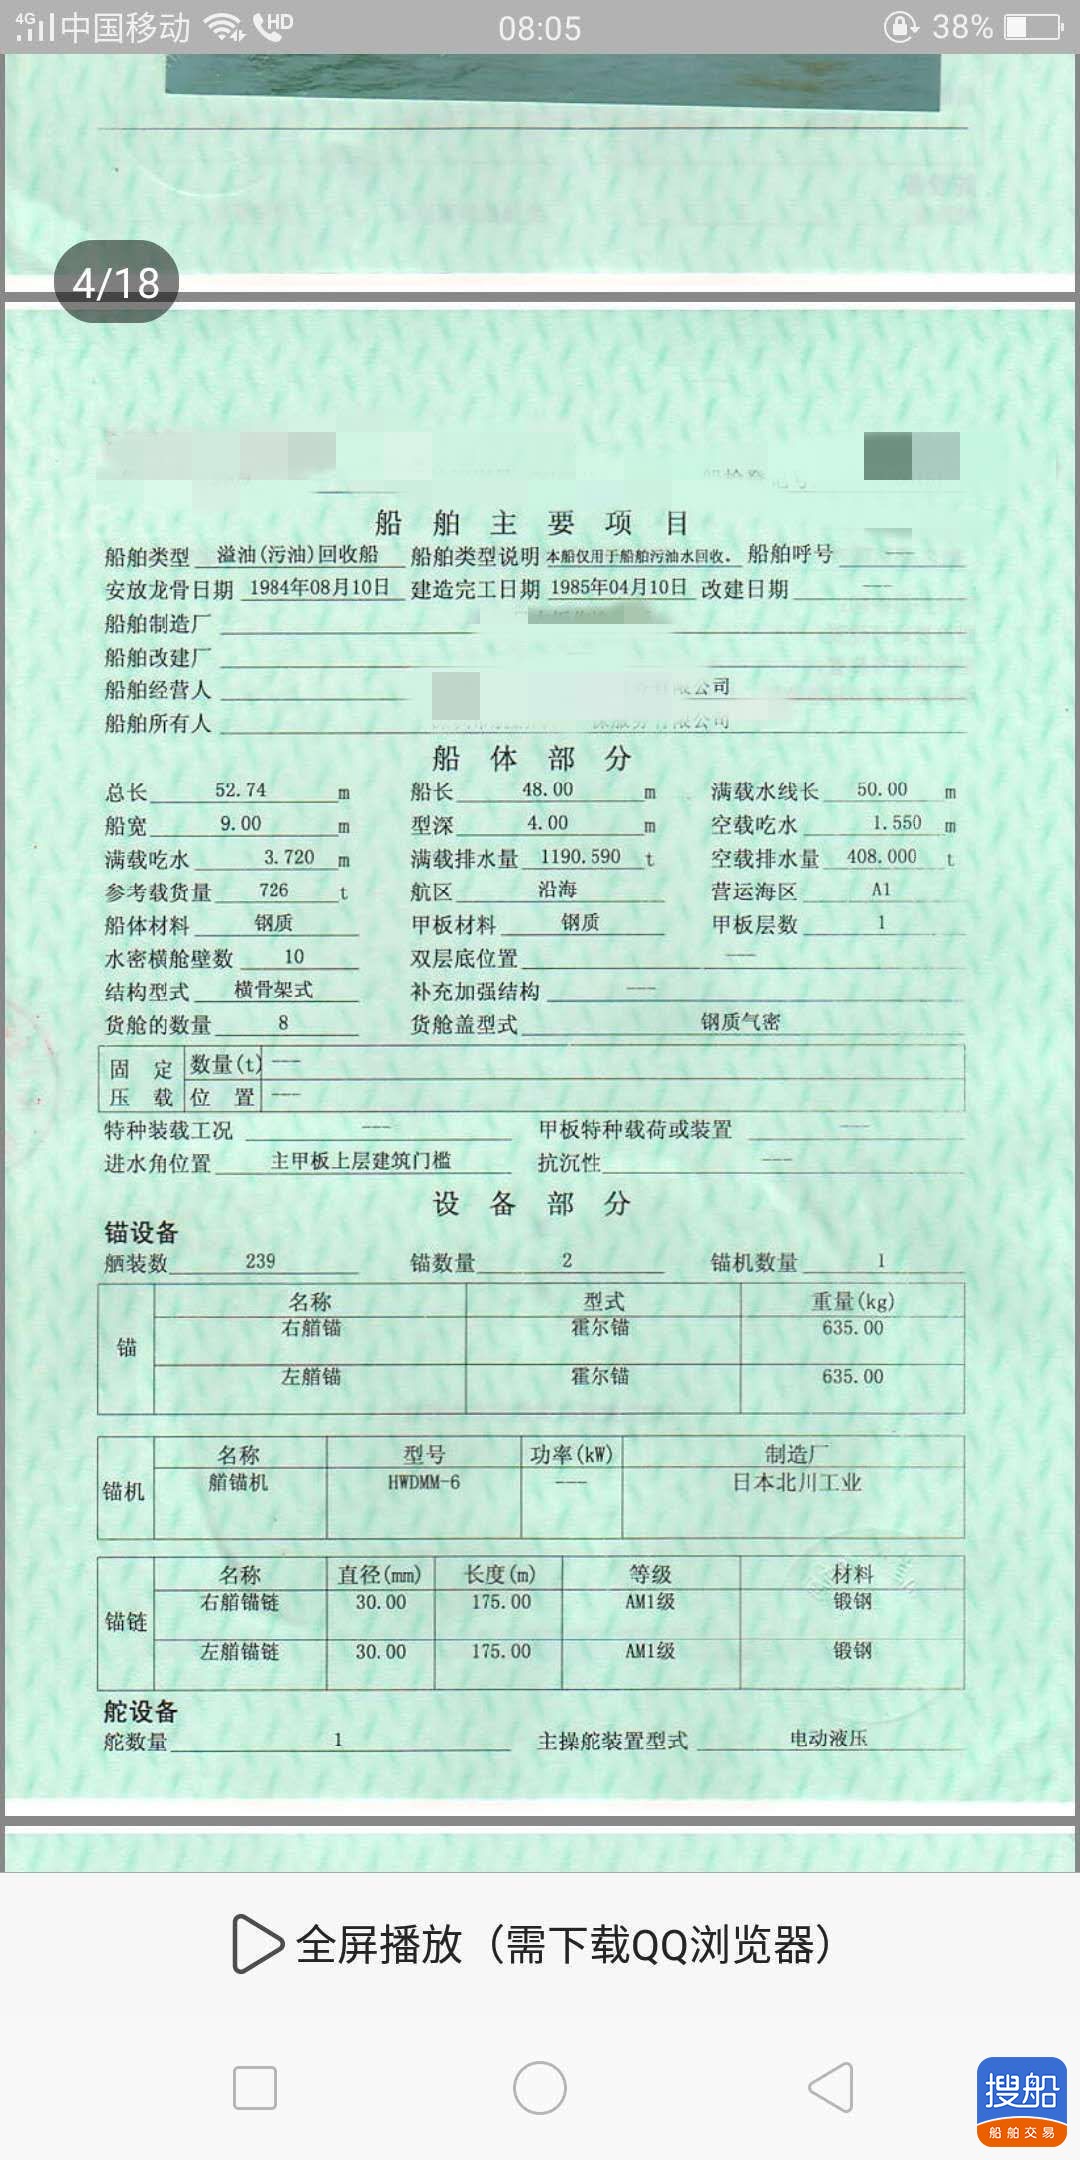 4G 中国移动 HD 08:05 38%
4/18
船舶主要项目
船舶类型 溢油(污油)回收船 船舶类型说明 本船仅用于船舶污油水回收. 船舶呼号 ---
安放龙骨日期 1984年08月10日 建造完工日期 1985年04月10日 改建日期 ---
船舶制造厂
船舶改建厂
船舶经营人 有限公司
船舶所有人 有限公司
船体部分
总长 52.74 m 船长 48.00 m 满载水线长 50.00 m
船宽 9.00 m 型深 4.00 m 空载吃水 1.550 m
满载吃水 3.720 m 满载排水量 1190.590 t 空载排水量 408.000 t
参考载货量 726 t 航区 沿海 营运海区 A1
船体材料 钢质 甲板材料 钢质 甲板层数 1
水密横舱壁数 10 双层底位置 ---
结构型式 横骨架式 补充加强结构 ---
货舱的数量 8 货舱盖型式 钢质气密
固定 数量(t) ---
压载 位置 ---
特种装载工况 --- 甲板特种载荷或装置 ---
进水角位置 主甲板上层建筑门槛 抗沉性 ---
设备部分
锚设备
舾装数 239 锚数量 2 锚机数量 1
名称 型式 重量(kg)
锚
右艏锚 霍尔锚 635.00
左艏锚 霍尔锚 635.00
名称 型号 功率(kW) 制造厂
锚机 艏锚机 HWDMM-6 --- 日本北川工业
名称 直径(mm) 长度(m) 等级 材料
锚链
右艏锚链 30.00 175.00 AM1级 锻钢
左艏锚链 30.00 175.00 AM1级 锻钢
舵设备
舵数量 1 主操舵装置型式 电动液压
全屏播放（需下载QQ浏览器）
搜船
船舶交易